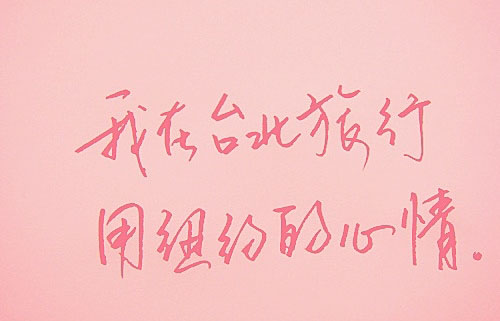 我在台北旅行
用纽约的心情。